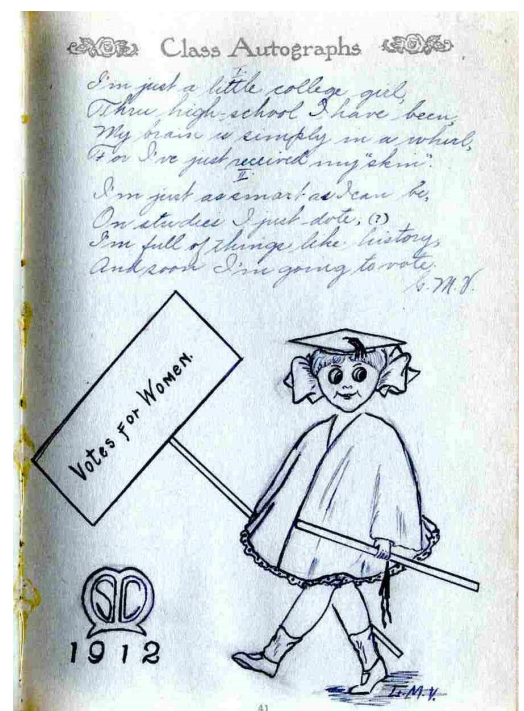 Class Autographs
I.
I'm just a little college girl,
Thru high-school I have been,
My brain is simply in a whirl,
For I've just received my "skin".
II.
I'm just as smart as I can be,
On studies I just dote, (?)
I'm full of things like history,
And soon I'm going to vote.
L.M.V.
Votes for Women.
SC
1912
L.M.V.
41